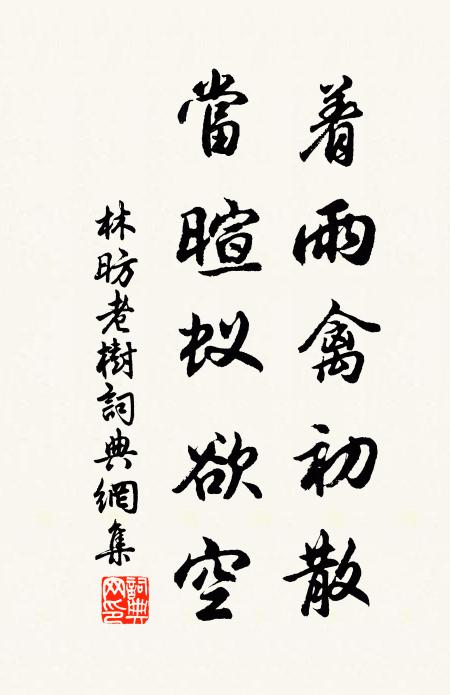 着雨禽初散
當暄蚁欲空
林昉老樹詞典網集
詞典网印